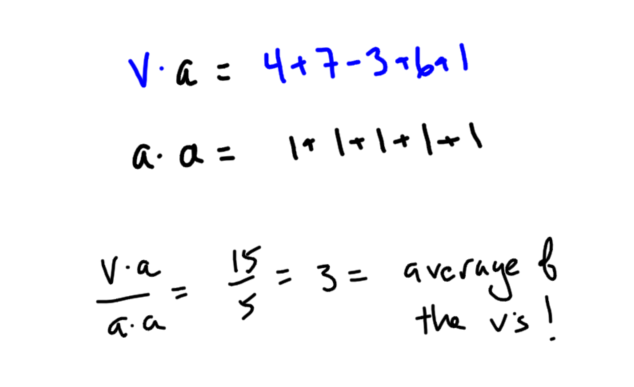 v · a = 4+7-3+6+1
a · a = 1+1+1+1+1
v·a / a·a = 15/5 = 3 = average of
the v's!